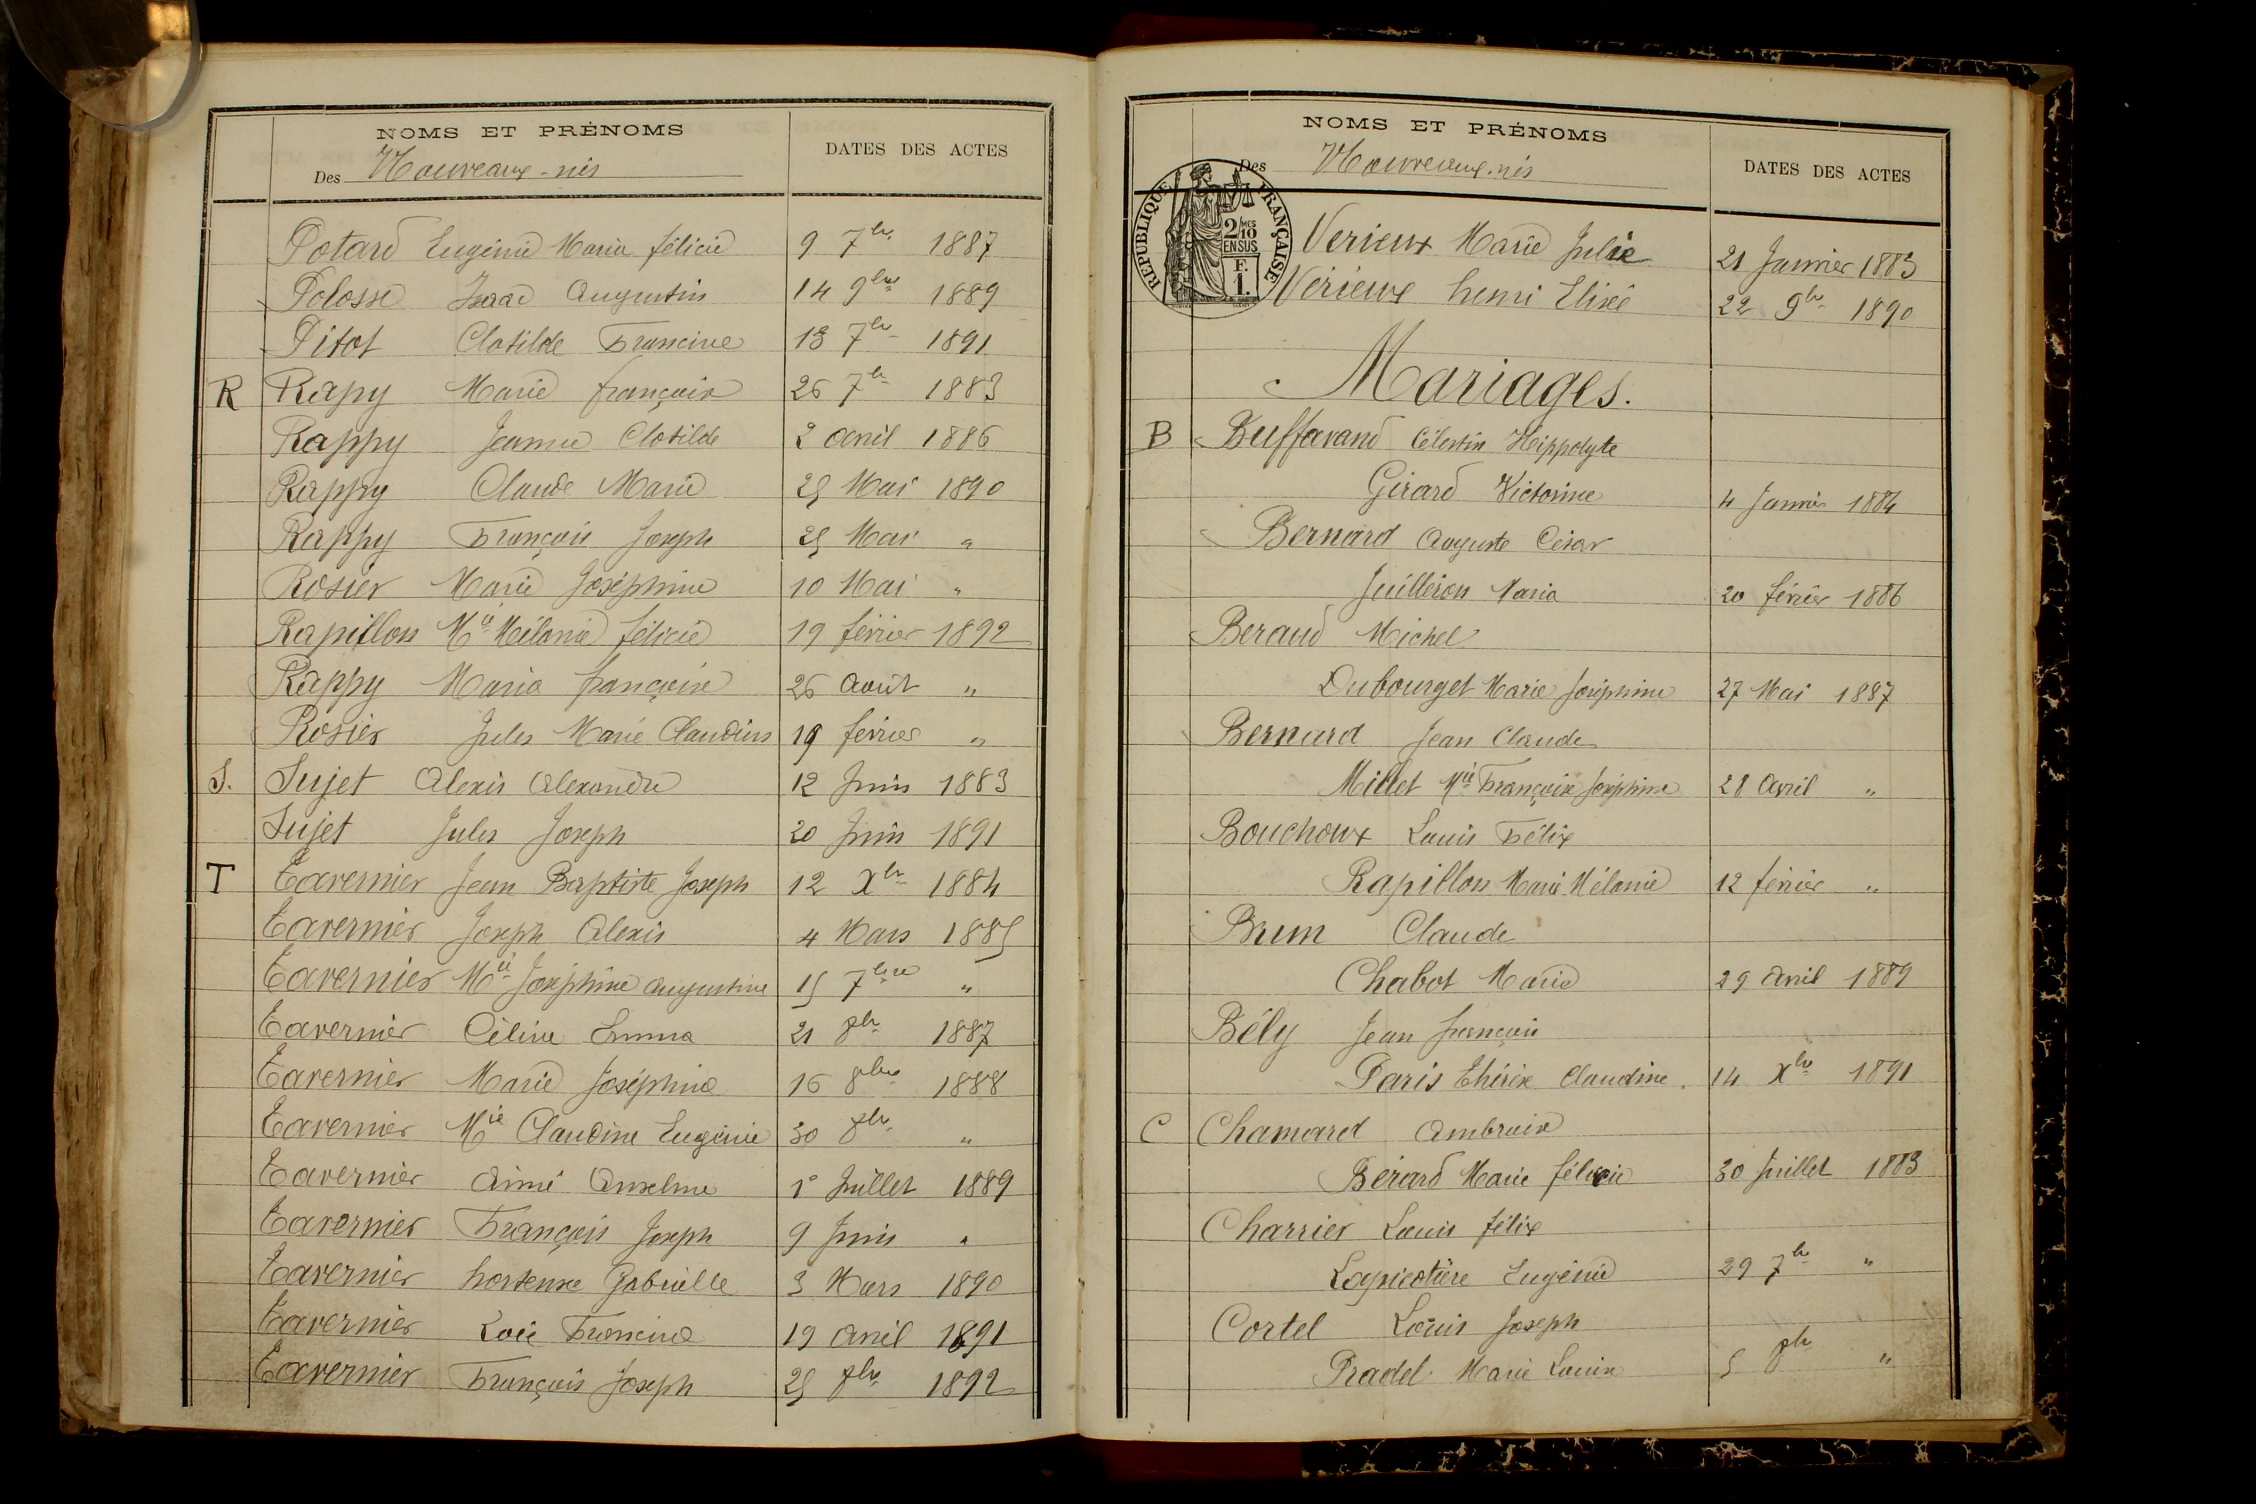 NOMS ET PRÉNOMS
Des Nouveaux-nés
DATES DES ACTES
Potard Eugénie Maria félicie 9 7bre 1887
Polosse Isaac Augustin 14 9bre 1889
Pitot Clotilde Francine 13 7bre 1891
R Rapy Marie françoise 26 7bre 1883
Rappy Jeanne Clotilde 2 avril 1886
Rappy Claude Marie 25 Mai 1890
Rappy François Joseph 25 Mai "
Rosier Marie Joséphine 10 Mai "
Rapillon Mie Mélanie félicie 19 février 1892
Rappy Maria françoise 26 août "
Rosier Jules Marie Claudius 19 février "
S. Sujet Alexis Alexandre 12 Juin 1883
Sujet Jules Joseph 20 Juin 1891
T Tavernier Jean Baptiste Joseph 12 Xbre 1884
Tavernier Joseph Alexis 4 Mars 1885
Tavernier Mie Joséphine Augustine 15 7bre "
Tavernier Céline Emma 21 8bre 1887
Tavernier Marie Joséphine 16 8bre 1888
Tavernier Mie Claudine Eugénie 30 8bre "
Tavernier Aimé Anselme 1er Juillet 1889
Tavernier François Joseph 9 Juin "
Tavernier hortense Gabrielle 3 Mars 1890
Tavernier Francine 19 avril 1891
Tavernier François Joseph 25 8bre 1892
NOMS ET PRÉNOMS
Des Nouveaux-nés
DATES DES ACTES
REPUBLIQUE FRANÇAISE
2/10MES
EN SUS
F.
1.
Verieux Marie Julie 21 Janvier 1883
Vérieux henri Elisée 22 9bre 1890
Mariages.
B Buffavand Célestin Hippolyte
Girard Victorine 4 Janvier 1884
Bernard Auguste César
Juilleron Maria 20 février 1886
Beraud Michel
Dubourget Marie Joséphine 27 Mai 1887
Bernard Jean Claude
Millet Mie Françoise Joséphine 28 Avril "
Bouchoux Louis Félix
Rapillon Marie Mélanie 12 février "
Brun Claude
Chabot Marie 29 avril 1889
Bély Jean françois
Paris Thérèse Claudine. 14 Xbre 1891
C Chamard Ambroise
Bérard Marie félicie 30 Juillet 1883
Charrier Louis félix
Lapicotière Eugénie 29 7bre "
Cortel Louis Joseph
Pradel Marie Louise 5 8bre "